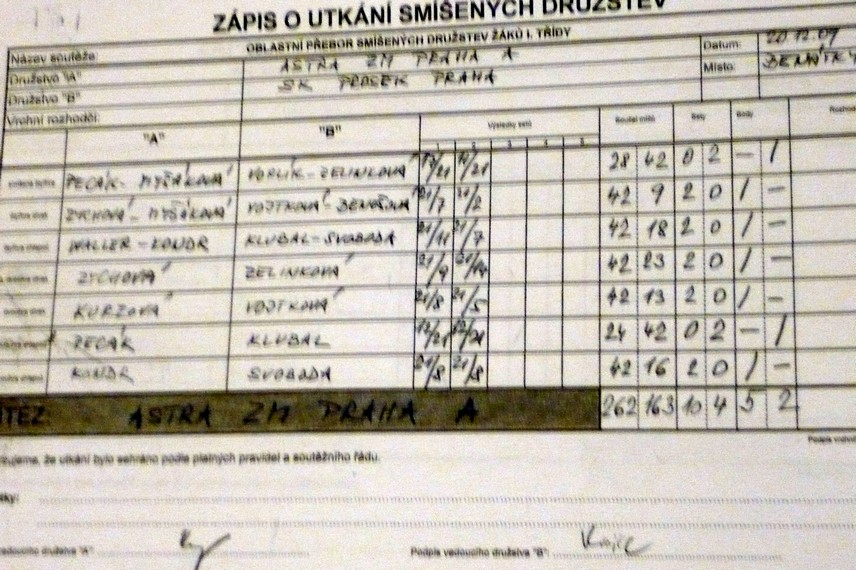 ZÁPIS O UTKÁNÍ SMÍŠENÝCH DRUŽSTEV
OBLASTNÍ PŘEBOR SMÍŠENÝCH DRUŽSTEV ŽÁKŮ I. TŘÍDY
Název soutěže: Datum: 20.12.09
Družstvo "A" ASTRA ZM PRAHA A Místo:
Družstvo "B" SK PROSEK PRAHA
Vrchní rozhodčí:
"A" "B" Výsledky setů Součet míčů Sety Body
1 2 3 4 5
PECÁK - MYŠÁKOVÁ VORLÍK - ZELINKOVÁ /21 /21 28 42 0 2 – 1
ZYCHOVÁ - MYŠÁKOVÁ VOJTKOVÁ - BENEŠOVÁ 21/7 21/2 42 9 2 0 1 –
WALLER - KONDR KLUBAL - SVOBODA 21/11 21/7 42 18 2 0 1 –
ZYCHOVÁ ZELINKOVÁ 21/9 21/14 42 23 2 0 1 –
KURZOVÁ VOJTKOVÁ 21/8 21/5 42 13 2 0 1 –
PECÁK KLUBAL 12/21 12/21 24 42 0 2 – 1
KONDR SVOBODA 21/8 21/8 42 16 2 0 1 –
ÍTĚZ: ASTRA ZM PRAHA A 262 163 10 4 5 2
že utkání bylo sehráno podle platných pravidel a soutěžního řádu.
Podpis
ky:
vedoucího družstva "A" Podpis vedoucího družstva "B":